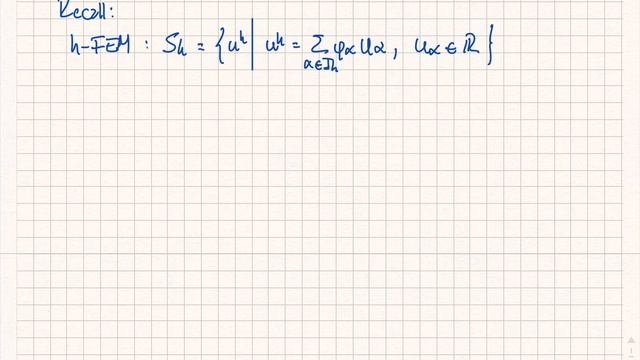 Recall:
h-FEM : Sₕ = { uʰ | uʰ = ∑_{α∈Iₕ} φ_α u_α , u_α ∈ ℝ }